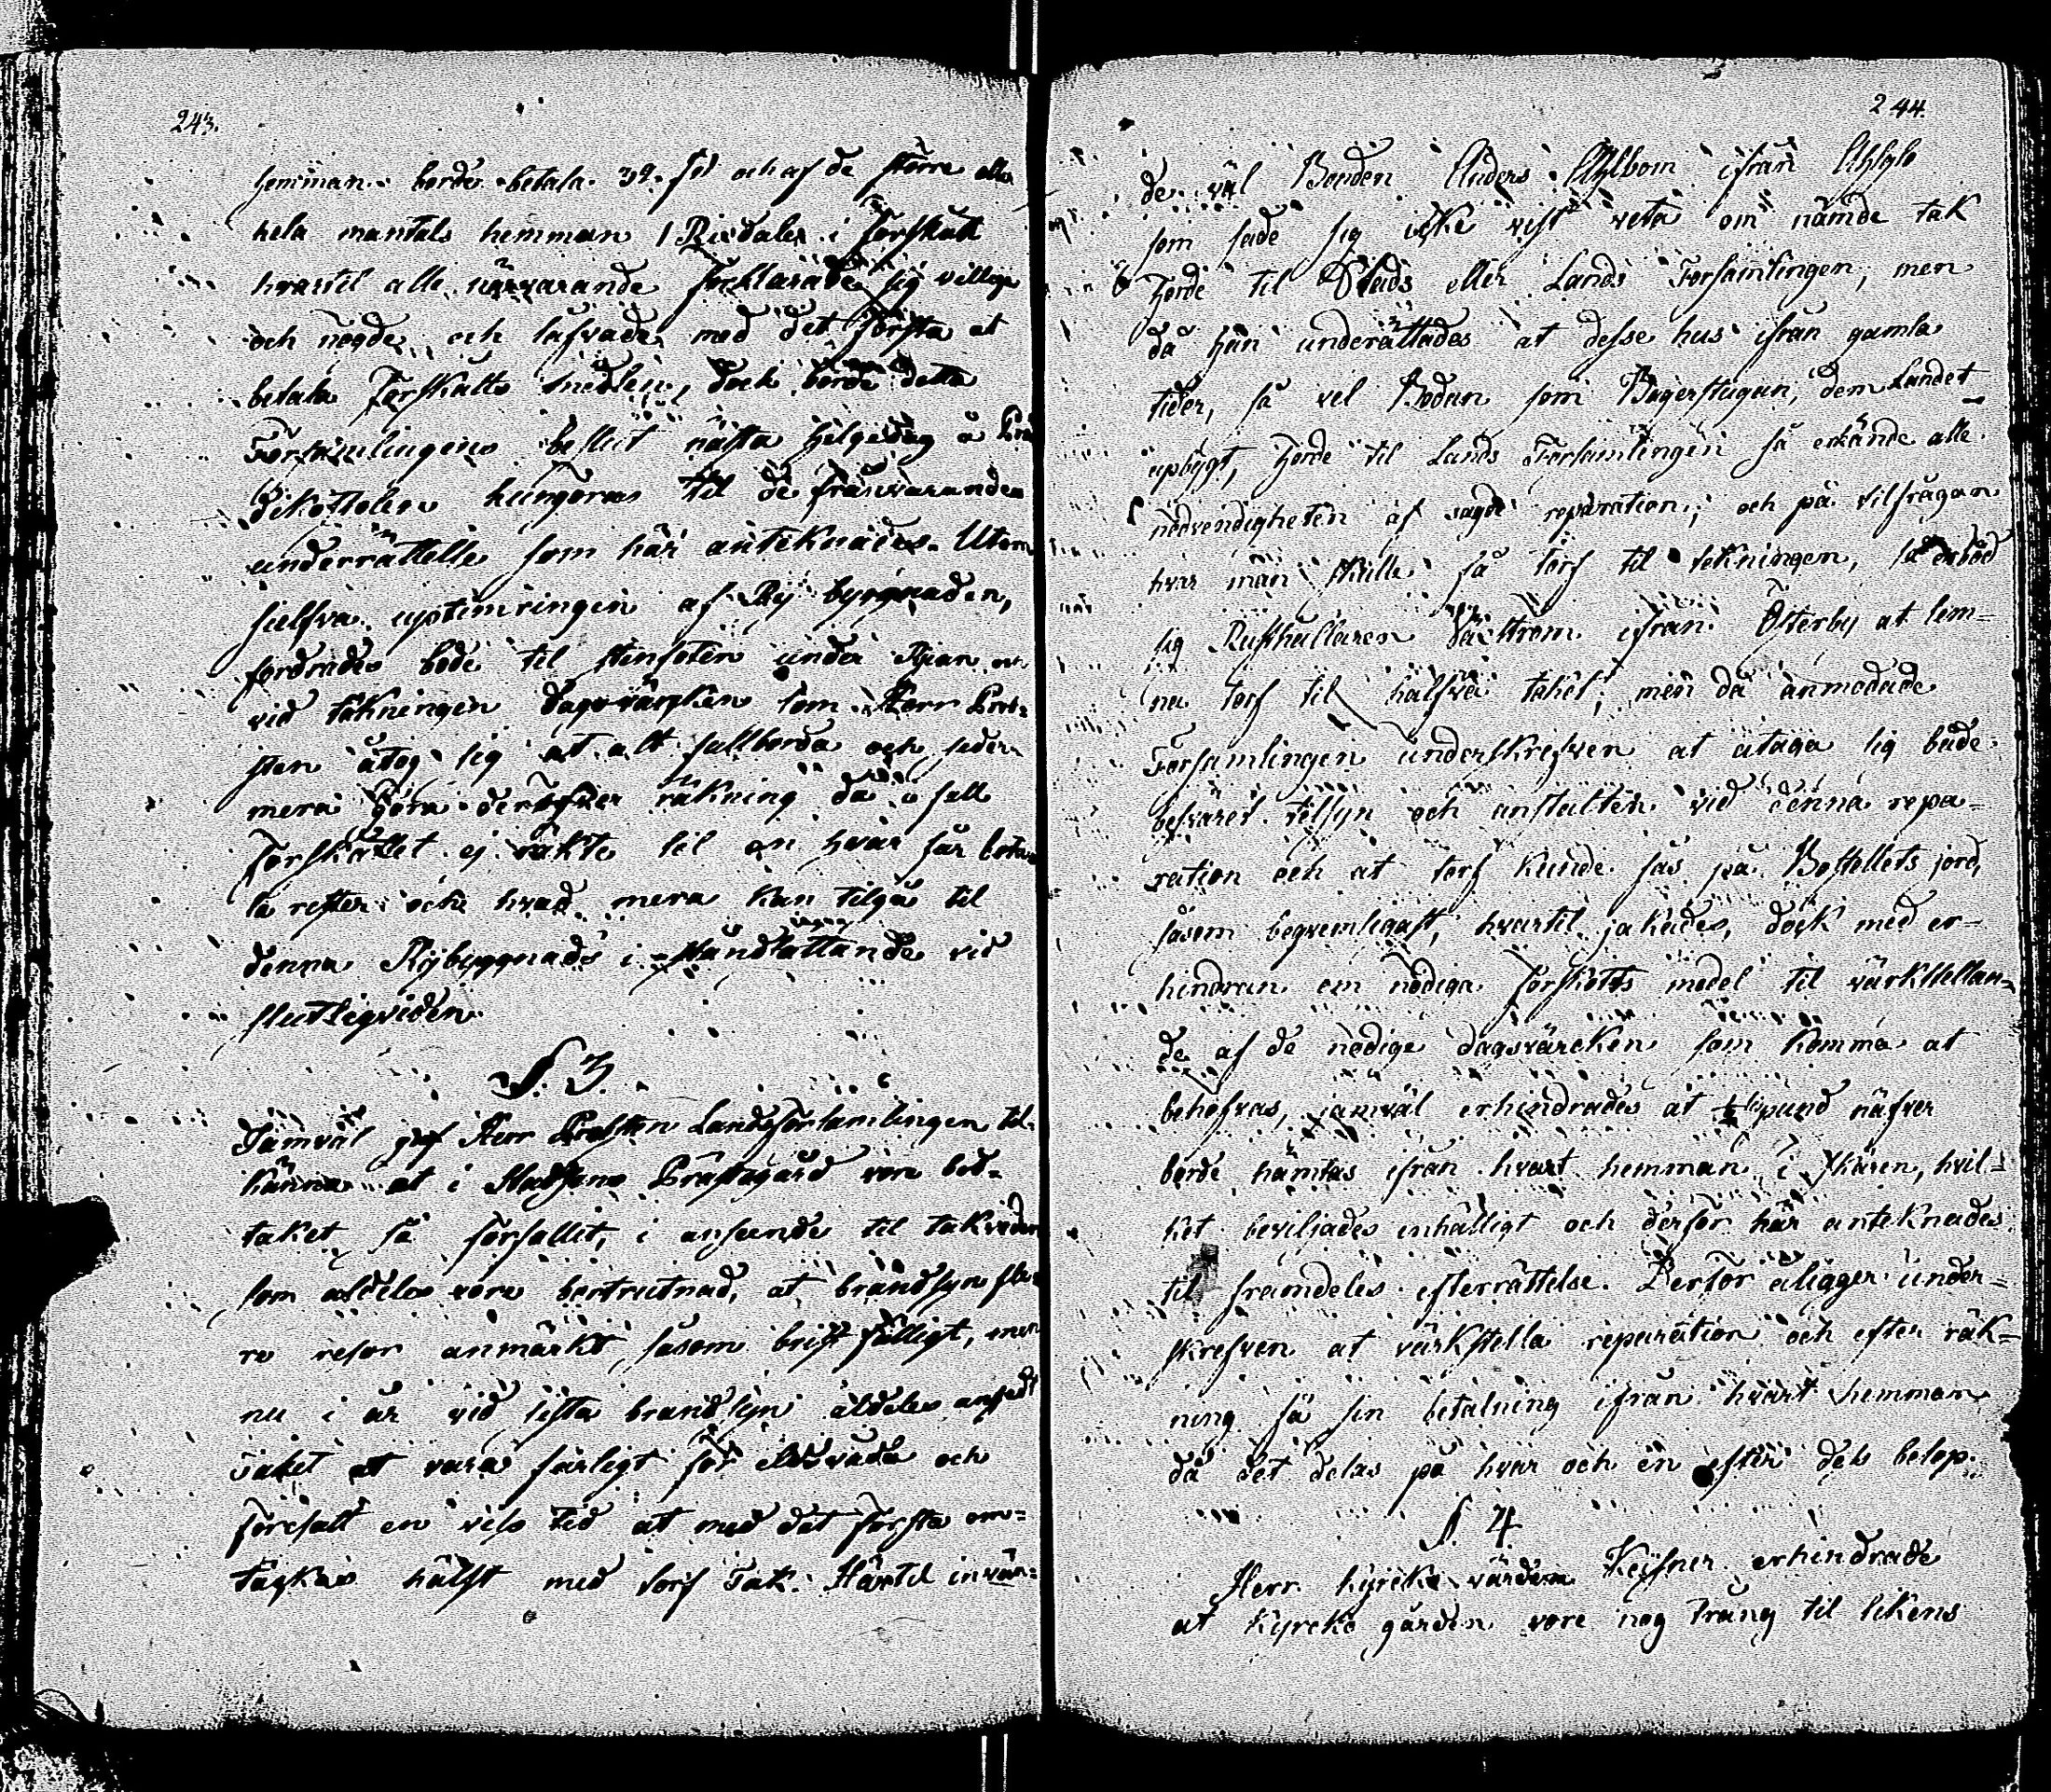 243.
hemman borde betala 32 sk och af de större eller
hela mantals hemman 1 Riksdaler i Förskått
hvartil alle närvarande förklarade sig villige
och nögde och låfvade med det första at
betala Förskåtts medlen, dock borde detta
Församlingens beslut nästa Helgedag å Pre-
dikostolen kungöras til de frånvarandes
underrättelse som här antecknades. Utom
sielfva uptimringen af Rij byggnaden,
fordrades bode til stenfoten under Rian och
vid täkningen dagsvärcken som Herr Prob-
sten åtog sig at alt fullborda och seder-
mera göra deröfver räkning då i fall
Förskåttet ej räkte til en hvar får beta-
la efter och hvad mera kan tilgå til
denna Rijbyggnads i ståndsättande vid
slutligviden.
§. 3.
Jämväl gaf Herr Probsten Landsförsamlingen til-
känna at i Stadsens Prästagård vore bod-
taket så förfallit, i anseende til takveden
som aldeles vore bortrutnad, at brandsyn fle-
re resor anmärkt såsom bristfälligt, men
nu i år vid sista brandsyn aldeles ansedt
taket at vara farligt för eldsvåda och
föresatt en viss tid at med det första om-
täckas hälst med torf Tak. Härtil invän-
244.
de väl Bonden Anders Ahlbom ifrån
som sade sig icke vist veta om nämde tak
hörde til Stads eller Lands Församlingen, men
då han underättades at desse hus ifrån gamla
tider, så vel Bodan som Bagerstugan, dem Landet
upbygt, hörde til Lands Församlingen så erkände alle
nödvendigheten af sagde reparation; och på tilfrågan
hvar man skulle få torf til tekningen, så erböd
sig Rusthållaren Väström ifrån Österby at lem-
na torf til halfva taket; men då anmodade
Församlingen underskrefven at åtaga sig både
besväret tilsyn och anstalten vid denna repa-
ration och at torf kunde fås på Bostellets jord,
såsom beqvemligast, hvartil jakades, dock med er-
hindran om nödiga förskotts medel til värkstellan-
de af de nödige dagsvärcken som komma at
behöfvas, jämväl erhindrades at ½ Lispund näfver
borde hämtas ifrån hvart hemman i Skären, hvil-
ket beviljades enhälligt och derför här anteknades
til framdeles efterrättelse. Derför åligger under-
skrefven at värkstella reparation och efter räk-
ning få sin betalning ifrån hvart hemman
då det delas på hvar och en efter des belop.
§. 4.
Herr kyrcke värden Keisner erhindrade
at kyrcko gården vore nog trång til likens